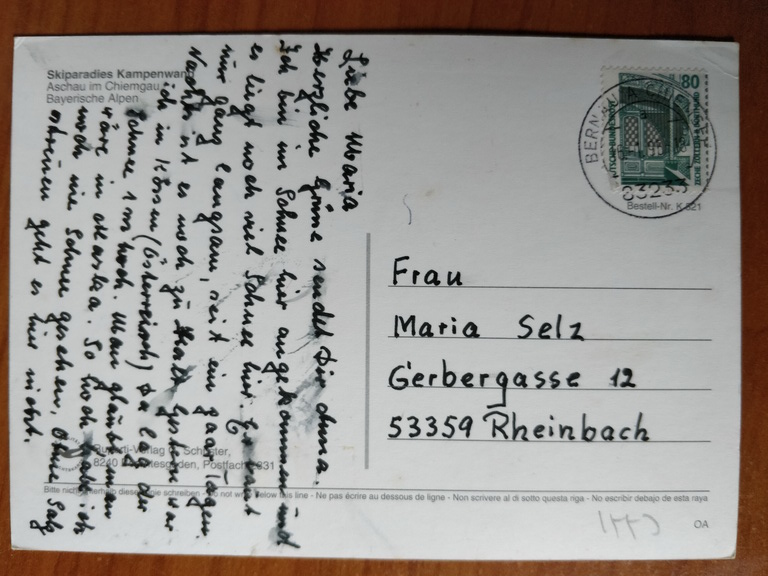 Skiparadies Kampenwand
Aschau im Chiemgau
Bayerische Alpen
Liebe Maria
Herzliche Grüße sendet Dir
Ich bin im Schnee hier angekommen und
es liegt noch viel Schnee hier. Es taut
nur ganz langsam, seit ein paar Tagen.
Nachts ist es noch zu kalt. Gestern war
ich in Kössen (Österreich) da lag der
Schnee 1 m hoch. Man glaubt man
wäre in Alaska. So hoch habe ich
noch nie Schnee gesehen. Ohne Salz
streuen geht es hier nicht.
80
DEUTSCHE BUNDESPOST
ZECHE ZOLLERN II DORTMUND
BERNAU
83233
Bestell-Nr. K 821
Frau
Maria Selz
Gerbergasse 12
53359 Rheinbach
Schöning Verlag
8240 Berchtesgaden, Postfach 2231
Bitte nicht unterhalb dieser Linie schreiben - Do not write below this line - Ne pas écrire au dessous de ligne - Non scrivere al di sotto questa riga - No escribir debajo de esta raya
OA